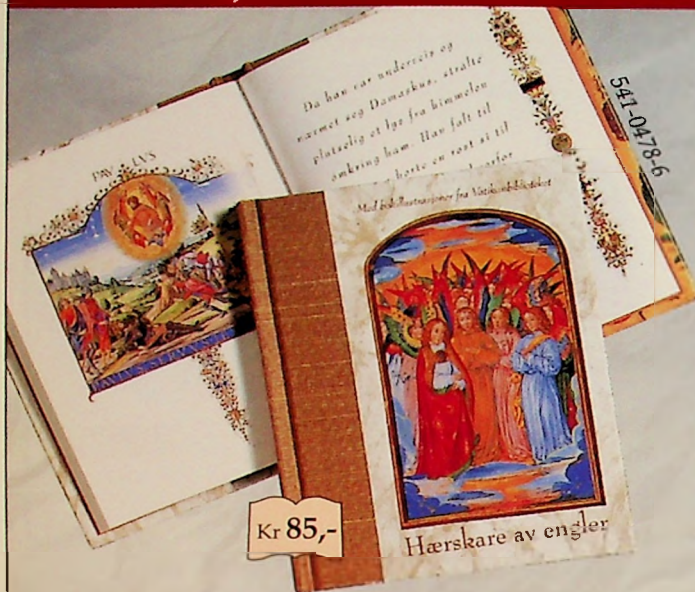 Da han var underveis og
nærmet seg Damaskus, strålte
plutselig et lys fra himmelen
omkring ham. Han falt til
og hørte en røst si til
541-0478-6
PAVLVS
PAVLVS SERVVS
Med bokillustrasjoner fra Vatikanbiblioteket
Kr 85,-
Hærskare av engler